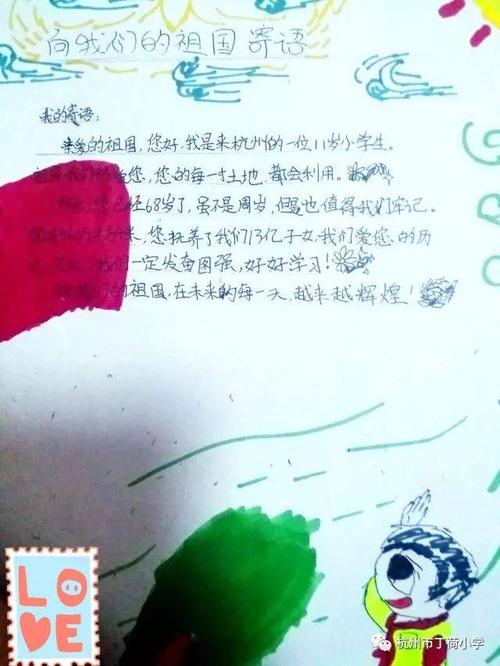 向我们的祖国寄语
我的寄语:
亲爱的祖国,您好,我是来杭州的一位11岁小学生。
祖国,我们爱您,您的每一寸土地,都会利用。
您已经68岁了,虽不是周岁,但也值得我们牢记。
您抚养了我们13亿子女,我们爱您的历
我们一定发奋图强,好好学习!
我们的祖国,在未来的每一天,越来越辉煌!
LOVE
杭州市丁荷小学